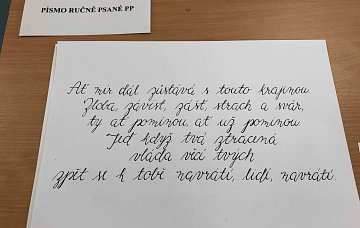 PÍSMO RUČNĚ PSANÉ PP
Ať mír dál zůstává s touto krajinou.
Zloba, závist, zášť, strach a svár,
ty ať pominou, ať už pominou.
Teď když tvá ztracená
vláda věcí tvých
zpět se k tobě navrátí, lidi, navrátí.